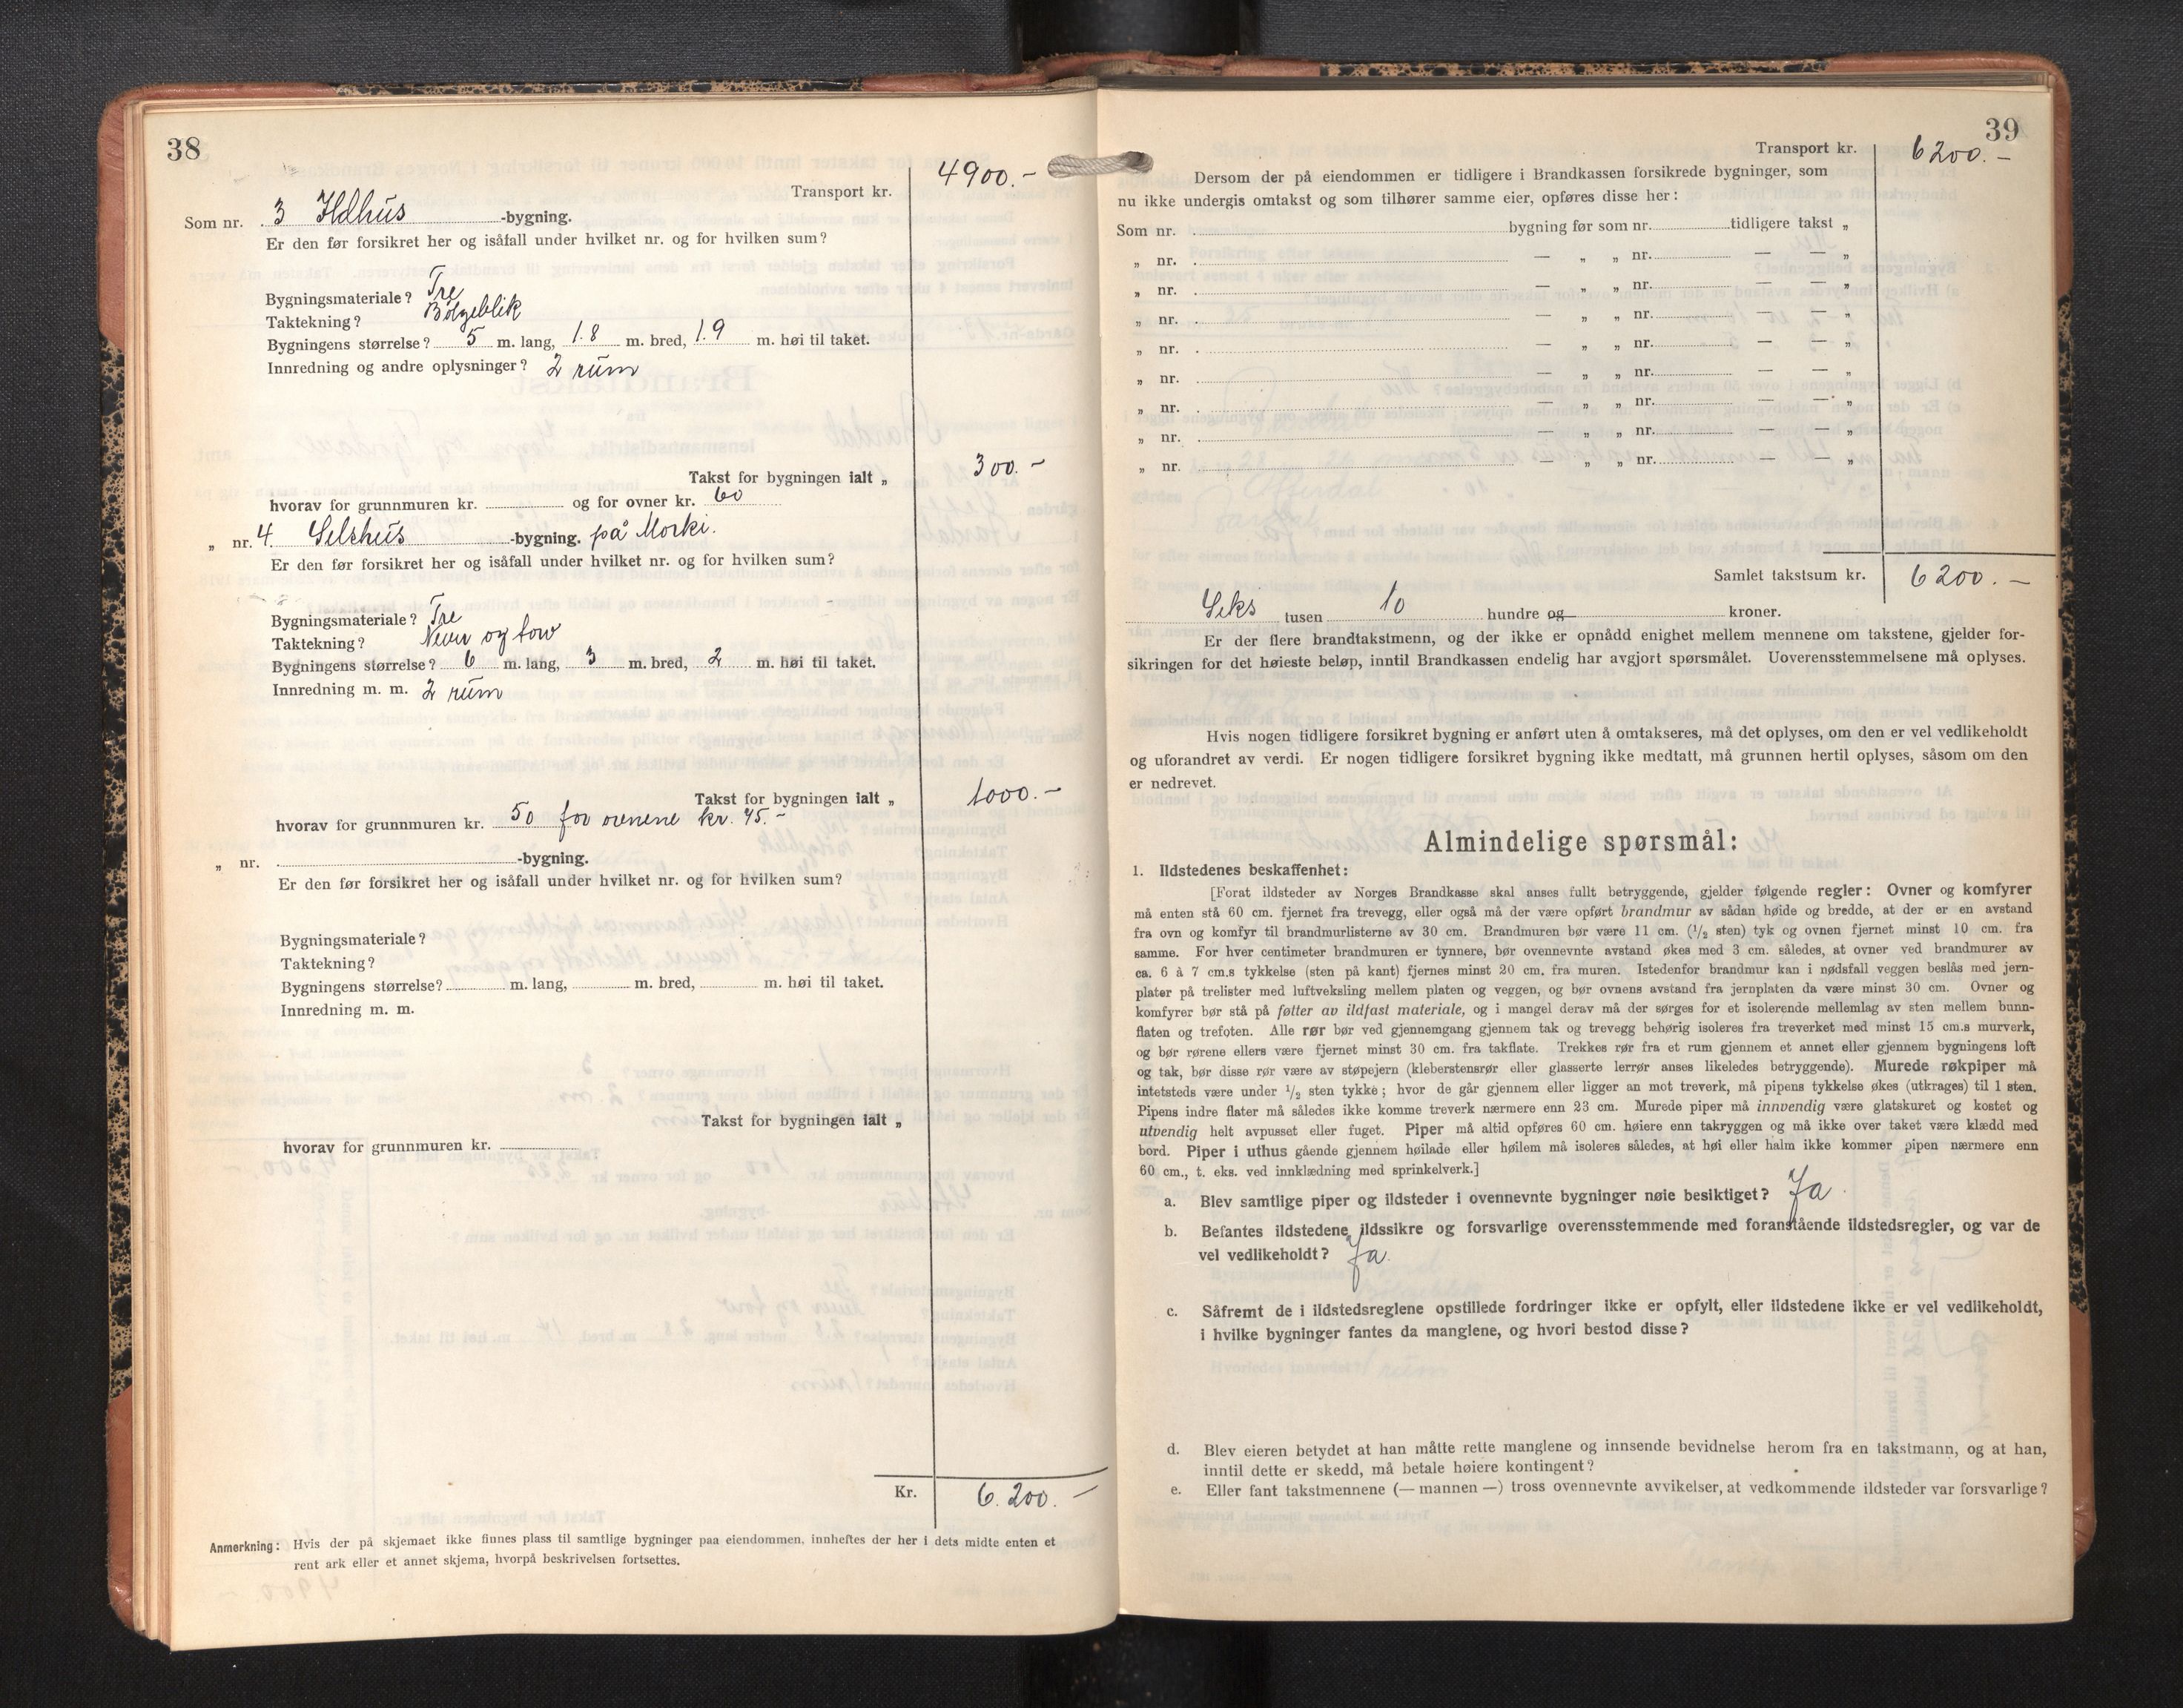 38
Transport kr. 4900.-
Som nr. 3 Ildhus -bygning.
Er den før forsikret her og isåfall under hvilket nr. og for hvilken sum?
Bygningsmateriale? Tre
Taktekning? Bølgeblik
Bygningens størrelse? 5 m. lang, 1.8 m. bred, 1.9 m. høi til taket.
Innredning og andre oplysninger? 2 rum
Takst for bygningen ialt „ 300.-
hvorav for grunnmuren kr. og for ovner kr. 60
„ nr. 4. Selshus -bygning. på Morki.
Er den før forsikret her og isåfall under hvilket nr. og for hvilken sum?
Bygningsmateriale? Tre
Taktekning? Never og torv
Bygningens størrelse? 6 m. lang, 3 m. bred, 2 m. høi til taket.
Innredning m. m. 2 rum
Takst for bygningen ialt „ 1000.-
hvorav for grunnmuren kr. 50 for ovnene kr. 45.-
„ nr. -bygning.
Er den før forsikret her og isåfall under hvilket nr. og for hvilken sum?
Bygningsmateriale?
Taktekning?
Bygningens størrelse? m. lang, m. bred, m. høi til taket.
Innredning m. m.
Takst for bygningen ialt „
hvorav for grunnmuren kr.
Kr. 6.200.-
Anmerkning: Hvis der på skjemaet ikke finnes plass til samtlige bygninger paa eiendommen, innheftes der her i dets midte enten et
rent ark eller et annet skjema, hvorpå beskrivelsen fortsettes.
39
Transport kr. 6200.-
Dersom der på eiendommen er tidligere i Brandkassen forsikrede bygninger, som
nu ikke undergis omtakst og som tilhører samme eier, opføres disse her:
Som nr. bygning før som nr. tidligere takst „
„ nr. — „ „ nr. — — „
„ nr. — „ „ nr. — — „
„ nr. — „ „ nr. — — „
„ nr. — „ „ nr. — — „
„ nr. — „ „ nr. — — „
„ nr. — „ „ nr. — — „
„ nr. — „ „ nr. — — „
„ nr. — „ „ nr. — — „
Samlet takstsum kr. 6200.-
Seks tusen to hundre og kroner.
Er der flere brandtakstmenn, og der ikke er opnådd enighet mellem mennene om takstene, gjelder for-
sikringen for det høieste beløp, inntil Brandkassen endelig har avgjort spørsmålet. Uoverensstemmelsene må oplyses.
Hvis nogen tidligere forsikret bygning er anført uten å omtakseres, må det oplyses, om den er vel vedlikeholdt
og uforandret av verdi. Er nogen tidligere forsikret bygning ikke medtatt, må grunnen hertil oplyses, såsom om den
er nedrevet.
Almindelige spørsmål:
1. Ildstedenes beskaffenhet:
[Forat ildsteder av Norges Brandkasse skal anses fullt betryggende, gjelder følgende regler: Ovner og komfyrer
må enten stå 60 cm. fjernet fra trevegg, eller også må der være opført brandmur av sådan høide og bredde, at der er en avstand
fra ovn og komfyr til brandmurlisterne av 30 cm. Brandmuren bør være 11 cm. (1/2 sten) tyk og ovnen fjernet minst 10 cm. fra
samme. For hver centimeter brandmuren er tynnere, bør ovennevnte avstand økes med 3 cm. således, at ovner ved brandmurer av
ca. 6 à 7 cm.s tykkelse (sten på kant) fjernes minst 20 cm. fra muren. Istedenfor brandmur kan i nødsfall veggen beslås med jern-
plater på trelister med luftveksling mellem platen og veggen, og bør ovnens avstand fra jernplaten da være minst 30 cm. Ovner og
komfyrer bør stå på føtter av ildfast materiale, og i mangel derav må der sørges for et isolerende mellemlag av sten mellem bunn-
flaten og trefoten. Alle rør bør ved gjennemgang gjennem tak og trevegg behørig isoleres fra treverket med minst 15 cm.s murverk,
og bør rørene ellers være fjernet minst 30 cm. fra takflate. Trekkes rør fra et rum gjennem et annet eller gjennem bygningens loft
og tak, bør disse rør være av støpejern (kleberstensrør eller glasserte lerrør anses likeledes betryggende). Murede røkpiper må
intetsteds være under 1/2 sten tykke; hvor de går gjennem eller ligger an mot treverk, må pipens tykkelse økes (utkrages) til 1 sten.
Pipens indre flater må således ikke komme treverk nærmere enn 23 cm. Murede piper må innvendig være glatskuret og kostet og
utvendig helt avpusset eller fuget. Piper må altid opføres 60 cm. høiere enn takryggen og må ikke over taket være klædd med
bord. Piper i uthus gående gjennem høilade eller høilem må isoleres således, at høi eller halm ikke kommer pipen nærmere enn
60 cm., t. eks. ved innklædning med sprinkelverk.]
a. Blev samtlige piper og ildsteder i ovennevnte bygninger nøie besiktiget? Ja.
b. Befantes ildstedene ildssikre og forsvarlige overensstemmende med foranstående ildstedsregler, og var de
vel vedlikeholdt? Ja.
c. Såfremt de i ildstedsreglene opstillede fordringer ikke er opfylt, eller ildstedene ikke er vel vedlikeholdt,
i hvilke bygninger fantes da manglene, og hvori bestod disse?
d. Blev eieren betydet at han måtte rette manglene og innsende bevidnelse herom fra en takstmann, og at han,
inntil dette er skedd, må betale høiere kontingent?
e. Eller fant takstmennene (— mannen —) tross ovennevnte avvikelser, at vedkommende ildsteder var forsvarlige?